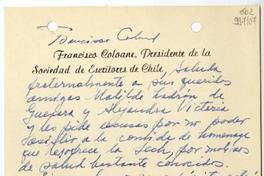 Francisco Coloane, Presidente de la
Sociedad de Escritores de Chile, saluda
fraternalmente a sus queridos
amigas Matilde Ladrón de
Guevara y Alejandra Victoria
y les pide excusas por no poder
asistir a la comida de homenaje
que le ofrece la Sech por motivos
de salud bastante conocidos.